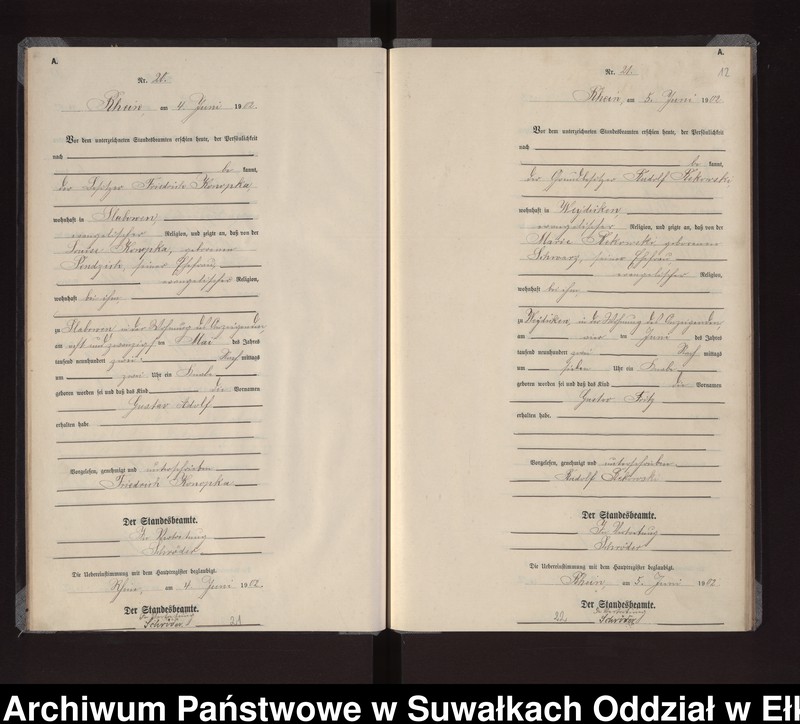 A.
Nr. 20.
Rhein am 4 Juni 1902.
Vor dem unterzeichneten Standesbeamten erschien heute, der Persönlichkeit
nach
be kannt,
der Besitzer Friedrich Konopka
wohnhaft in Slabowen,
evangelischer Religion, und zeigte an, daß von der
Louise Konopka, geborenen
seiner Ehefrau
evangelischer Religion,
wohnhaft bei ihm
zu Slabowen, in der Wohnung des Anzeigenden
am acht und zwanzigsten Mai des Jahres
tausend neunhundert zwei Nach mittags
um zwei Uhr ein Knabe
geboren worden sei und daß das Kind die Vornamen
Gustav Adolf
erhalten habe.
Vorgelesen, genehmigt und unterschrieben
Friedrich Konopka
Der Standesbeamte.
In Vertretung
Schröder
Die Uebereinstimmung mit dem Hauptregister beglaubigt.
Rhein, am 4. Juni 1902.
Der Standesbeamte.
In Vertretung
Schröder
21
A.
12
Nr. 21.
Rhein, am 5. Juni 1902
Vor dem unterzeichneten Standesbeamten erschien heute, der Persönlichkeit
nach
be kannt,
der Grundbesitzer Rudolf
wohnhaft in
evangelischer Religion, und zeigte an, daß von der
Marie geborenen
Schwarz, seiner Ehefrau
evangelischer Religion,
wohnhaft bei ihm
zu in der Wohnung des Anzeigenden
am vier ten Juni des Jahres
tausend neunhundert zwei Nach mittags
um sieben Uhr ein Knabe
geboren worden sei und daß das Kind die Vornamen
Gustav Fritz
erhalten habe.
Vorgelesen, genehmigt und unterschrieben
Rudolf
Der Standesbeamte.
In Vertretung
Schröder
Die Uebereinstimmung mit dem Hauptregister beglaubigt.
Rhein, am 5. Juni 1902
Der Standesbeamte.
In Vertretung
Schröder
22
Archiwum Państwowe w Suwałkach Oddział w Eł